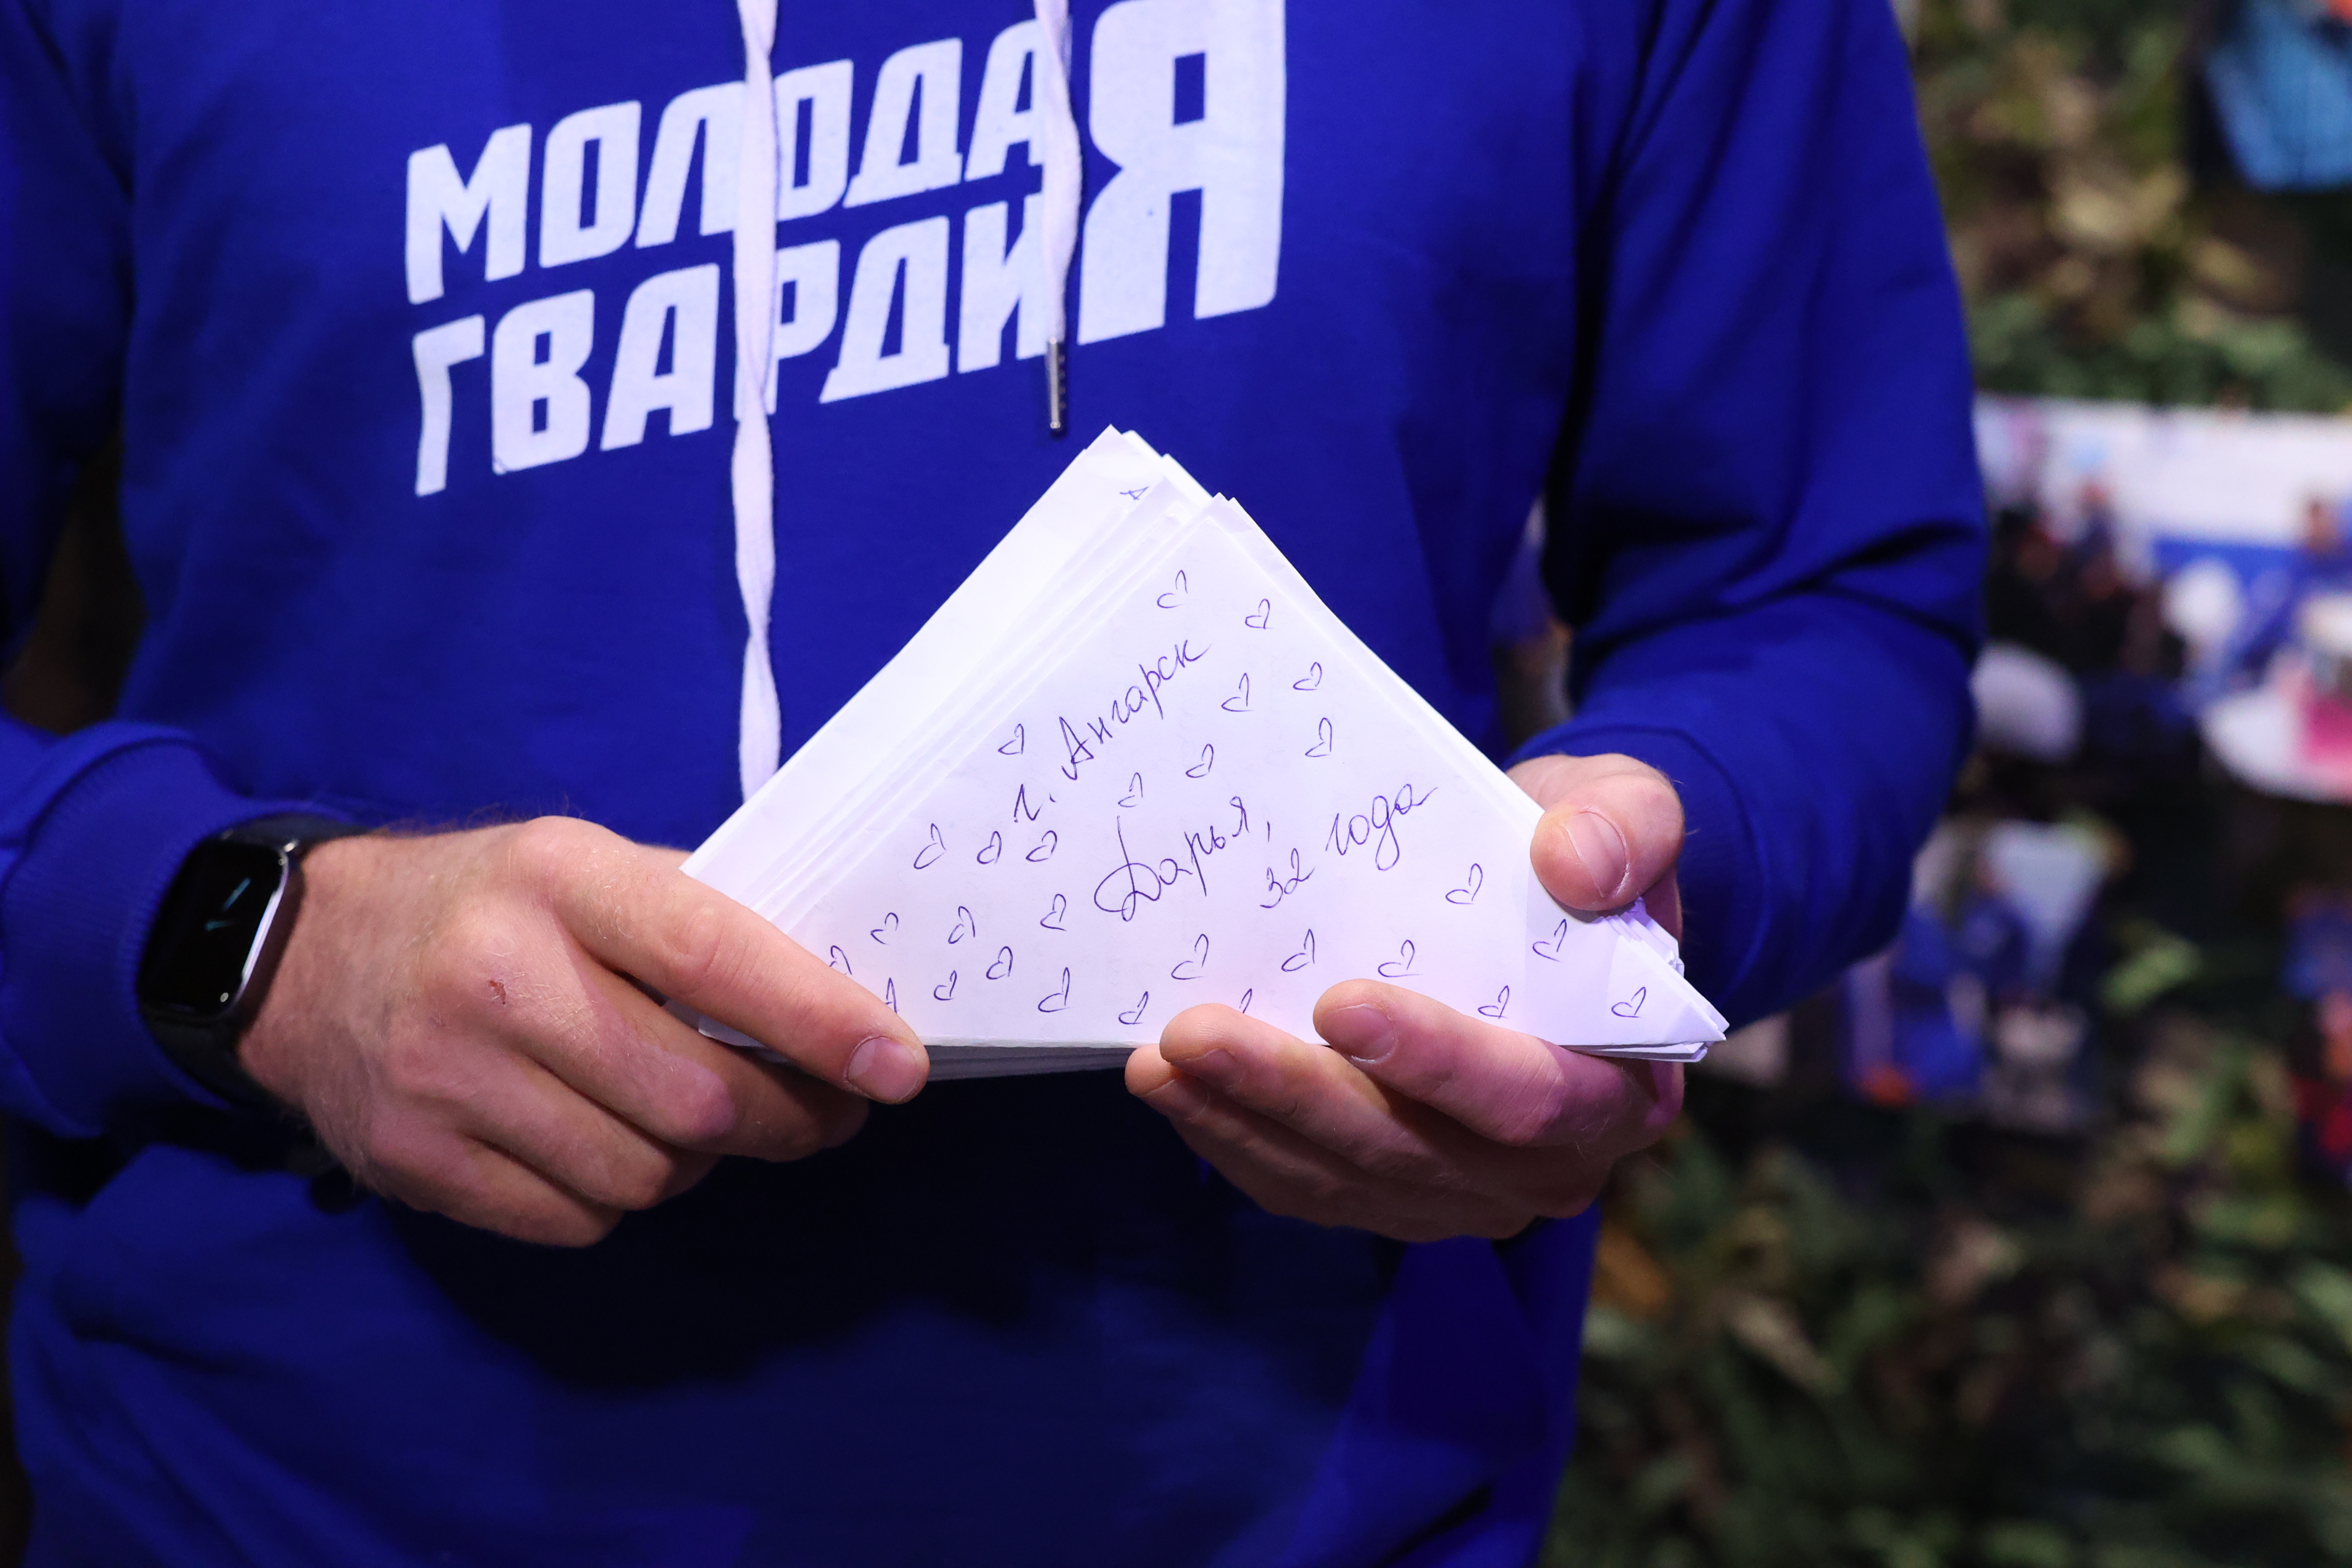 МОЛОДАЯ
ГВАРДИЯ
г. Ангарск
Дарья,
32 года